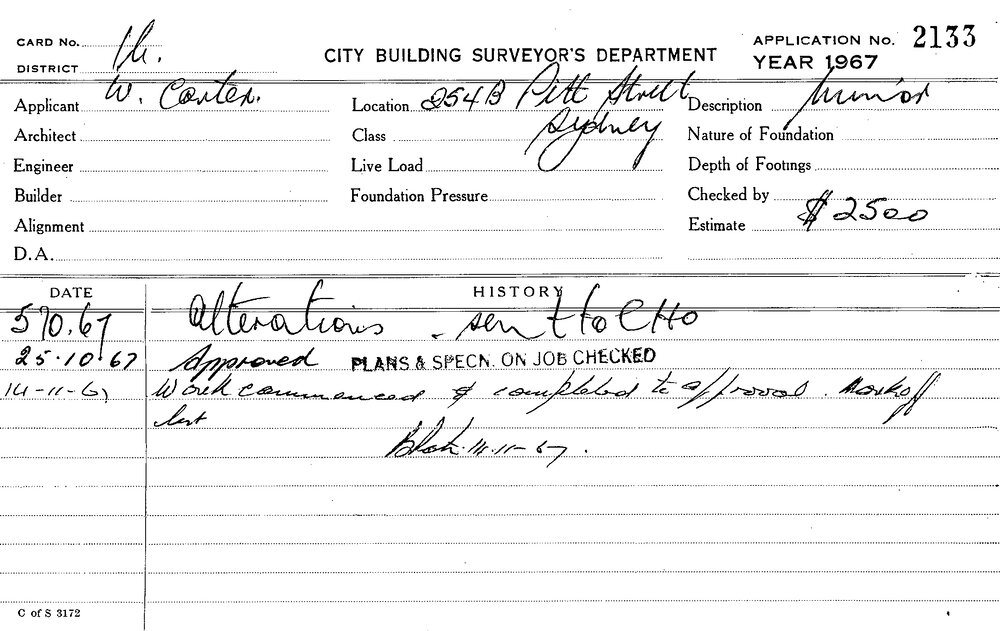 CARD No.
DISTRICT
CITY BUILDING SURVEYOR'S DEPARTMENT
APPLICATION No. 2133
YEAR 1967
Applicant W. Carter.
Location 254B Pitt Street Sydney
Description Minor
Architect
Class
Nature of Foundation
Engineer
Live Load
Depth of Footings
Builder
Foundation Pressure
Checked by
Alignment
Estimate $2500
D.A.
DATE HISTORY
5 10.67 Alterations - sent to CHO
25.10.67 Approved PLANS & SPECN. ON JOB CHECKED
14-11-67 Work commenced & completed to approval. Mark off
14-11-67.
C of S 3172